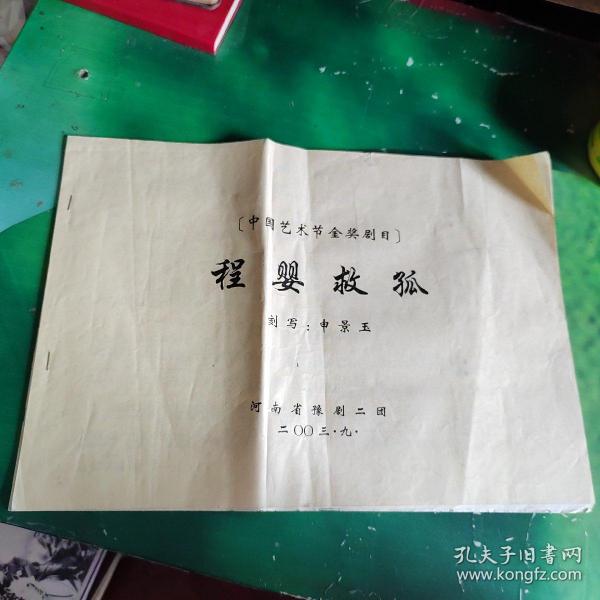 〔中国艺术节金奖剧目〕
程婴救孤
刻写：申景玉
河南省豫剧二团
二〇〇三·九·
孔夫子旧书网
www.kongfz.com